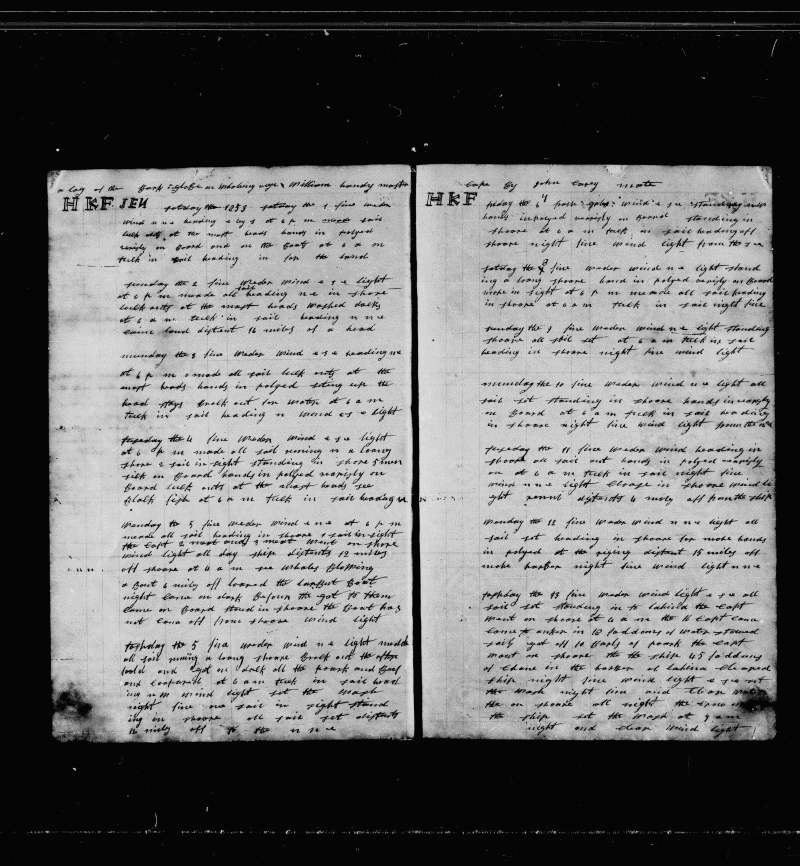 a log of the Bark globe on Whaling voige William handy master
HKF JEH saturday the 1853 saturday the 1 fine weder
wind n n e heading e by s at 6 p m most sail
luck outs at the mast heads hands in polyed
varisly on Board and on the Boat at 6 a m
tuck in sail heading in for the land
sunday the 2 fine weder wind e s e light
at 6 p m made all sail heading n e in shore
luck outs at the mast heads washed decks
at 6 a m tuck in sail heading n n e
came land distant 16 miles of a head
munday the 3 fine weder wind e s e heading ne
at 6 p m made all sail luck outs at the
mast heads hands in polyed seting up the
head stays Brock out for water at 6 a m
tuck in sail heading n wind e s e light
tusday the 4 fine weder wind e s e light
at 6 p m made all sail runing a loung
shore 2 sail in sight standing in shore 5 men
sick on Board hands in polyed varisly on
Board luck outs at the mast heads see
Black fish at 6 a m tuck in sail heading n
the 5 fine weder wind e n e at 6 p m
made all sail heading in shoore 1 sail in sight
the Capt 2 mate and 3 mate Went on shore
wind light all day ship distants 12 miles
off shoore at 4 a m see whales Blowing
a Boat 6 miles off lowred the Boat
night came on dark Before the got to them
came on Board stand in shoore the Boat has
not come off from shoore wind light
the 5 fine weder wind n e light made
all sail runing a loung shoore Brock out the after
hold and got on deck all the poark and Beef
and coopared at 6 a m tuck in sail head
ing n w wind light set the wach
night fine one sail in sight stand
ing in shoore all sail set distants
12 mils off to the n n e
cape By John Carey mate
HKF friday the 6 wind e s e standing
hands in polyed varisly on Board standing in
shoore at 6 a m tuck in sail heading off
shoore night fine wind light from the s e
satday the 8 fine weder wind n e light stand
ing a loung shoore hand in polyed varisly on Board
in sight at 6 p m made all sail heading
in shoore at 6 a m tuck in sail night fine
sunday the 9 fine weder wind n e light standing
shoore all sail set at 6 a m tuck in sail
heading in shoore night fine wind light
munday the 10 fine weder wind n e light all
sail set standing in shoore hands in varisly
on Board at 6 a m tuck in sail heading
in shoore night fine wind light from the n e
tusday the 11 fine weder wind heading in
shoore all sail out hands in polyed varisly
on at 6 a m tuck in sail night fine
wind n n e light in shoore wind li
ght distants 4 mils off from the ship
the 12 fine weder wind n n e light all
sail set heading in shoore for hands
in polyed at the riging distant 15 miles off
harbor night fine wind light n n e
the 13 fine weder wind light e s e all
sail set standing in to the Capt
Went on shoore at 4 a m the Capt came
came to anker in 12 faddoms of water
sails got off 10 Barls of poark the Capt
Went on shoore the the ship 45 faddoms
of Chane in the harbor of
ship night fine wind light e s e set
the wach night fine and Clear
the on shoore all night the
the ship set the Wach at 9 a m
night and Clear wind light